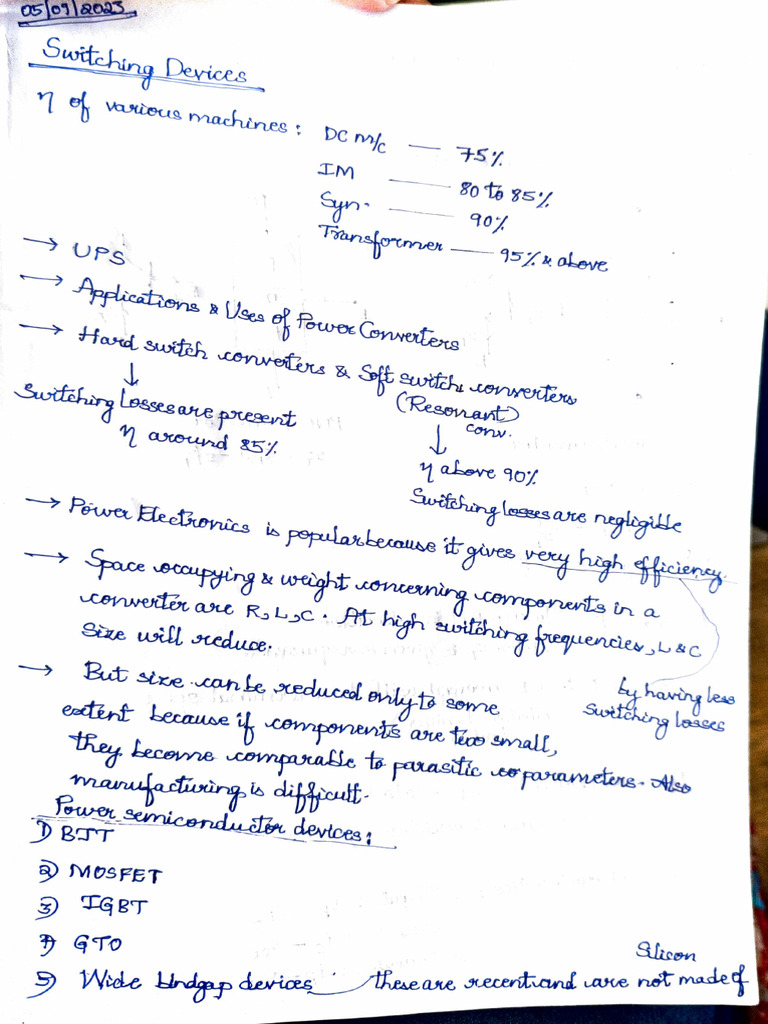 05/09/2023
Switching Devices
η of various machines: DC m/c — 75%
IM — 80 to 85%
Syn. — 90%
Transformer — 95% & above
→ UPS
→ Applications & Uses of Power Converters
→ Hard switch converters & Soft switch converters
↓ (Resonant)
conv.
Switching Losses are present
η around 85%
↓
η above 90%
Switching losses are negligible
→ Power Electronics is popular because it gives very high efficiency.
by having less
Switching losses
→ Space occupying & weight concerning components in a
converter are R, L, C. At high switching frequencies, L & C
size will reduce.
→ But size can be reduced only to some
extent because if components are too small,
they become comparable to parasitic parameters. Also
manufacturing is difficult.
Power semiconductor devices:
1) BJT
2) MOSFET
3) IGBT
4) GTO
5) Wide bandgap devices — these are recent and are not made of
Silicon